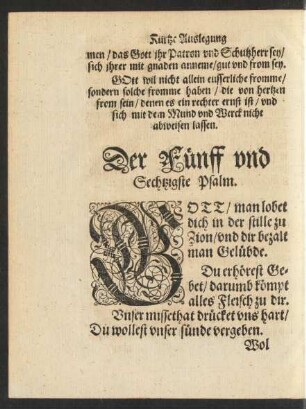 Kürtze Auslegung
men / das Gott jhr Patron vnd Schutzherr sey /
sich jhrer mit gnaden anneme / gut vnd from sey.
GOtt wil nicht allein eusserliche fromme /
sondern solche fromme haben / die von hertzen
from sein / denen es ein rechter ernst ist / vnd
sich mit dem Mund vnd Werck nicht
abweisen lassen.
Der Fünff vnd
Sechtzigste Psalm.
GOTT / man lobet
dich in der stille zu
Zion / vnd dir bezalt
man Gelübde.
Du erhörest Ge-
bet / darumb kömpt
alles Fleisch zu dir.
Vnser missethat drücket vns hart /
Du wollest vnser sünde vergeben.
Wol